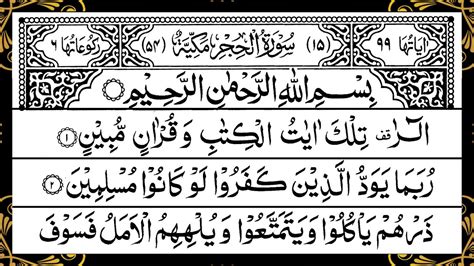 اٰیَاتُهَا ۹۹ (۱۵) سُوْرَةُ الْحِجْرِ مَكِّیَّةٌ (۵۴) رُكُوْعَاتُهَا ۶
بِسْمِ اللّٰهِ الرَّحْمٰنِ الرَّحِیْمِ
الٓرٰ ۫ تِلْكَ اٰیٰتُ الْكِتٰبِ وَ قُرْاٰنٍ مُّبِیْنٍ ۱
رُبَمَا یَوَدُّ الَّذِیْنَ كَفَرُوْا لَوْ كَانُوْا مُسْلِمِیْنَ ۲
ذَرْهُمْ یَاْكُلُوْا وَ یَتَمَتَّعُوْا وَ یُلْهِهِمُ الْاَمَلُ فَسَوْفَ